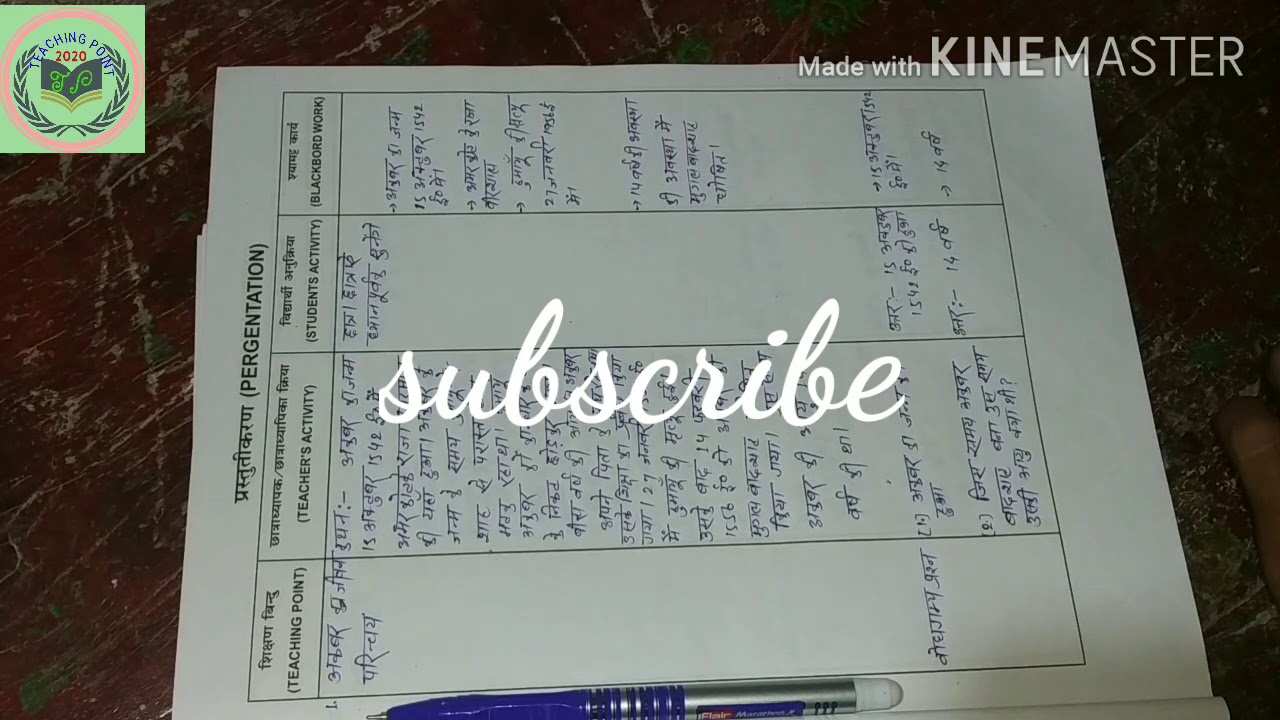 TEACHING POINT
2020
Made with KINEMASTER
subscribe
प्रस्तुतीकरण (PERGENTATION)
शिक्षण बिन्दु
(TEACHING POINT)
छात्राध्यापक/छात्राध्यापिका क्रिया
(TEACHER'S ACTIVITY)
विद्यार्थी अनुक्रिया
(STUDENTS ACTIVITY)
श्यामपट्ट कार्य
(BLACKBORD WORK)
1.
अकबर का जीवन
परिचय
कथन:- अकबर का जन्म
15 अक्तुबर 1542 ई० में
के यहाँ हुआ।
जन्म के समय
शाह से
अकबर को
के निकट छोड़कर
अपने पिता के
उसके शिक्षा का
गया। 27 जनवरी
में हुमायूँ की मृत्यु हुई।
उसके बाद 14 फरवरी
1556 ई० को
मुगल बादशाह
किया गया।
अकबर की
वर्ष की था।
छात्र/छात्राएँ
ध्यान पूर्वक सुनेंगे
→ अकबर का जन्म
15 अक्तुबर 1542
ई० में।
→ अमरकोट के राजा
वीरसाल
→ हुमायूँ की मृत्यु
27 जनवरी 1556 ई
में
→ 14 वर्ष की अवस्था
की अवस्था में
मुगल बादशाह
घोषित।
बोधगम्य प्रश्न
(1.) अकबर का जन्म कब
हुआ
(2.) जिस समय अकबर
बादशाह बना उस समय
उसकी आयु क्या थी?
उत्तर:- 15 अक्टुबर
1542 ई० को हुआ
उत्तर:- 14 वर्ष
→ 15 अक्तुबर 1542
ई० में।
→ 14 वर्ष
Flair Marathon